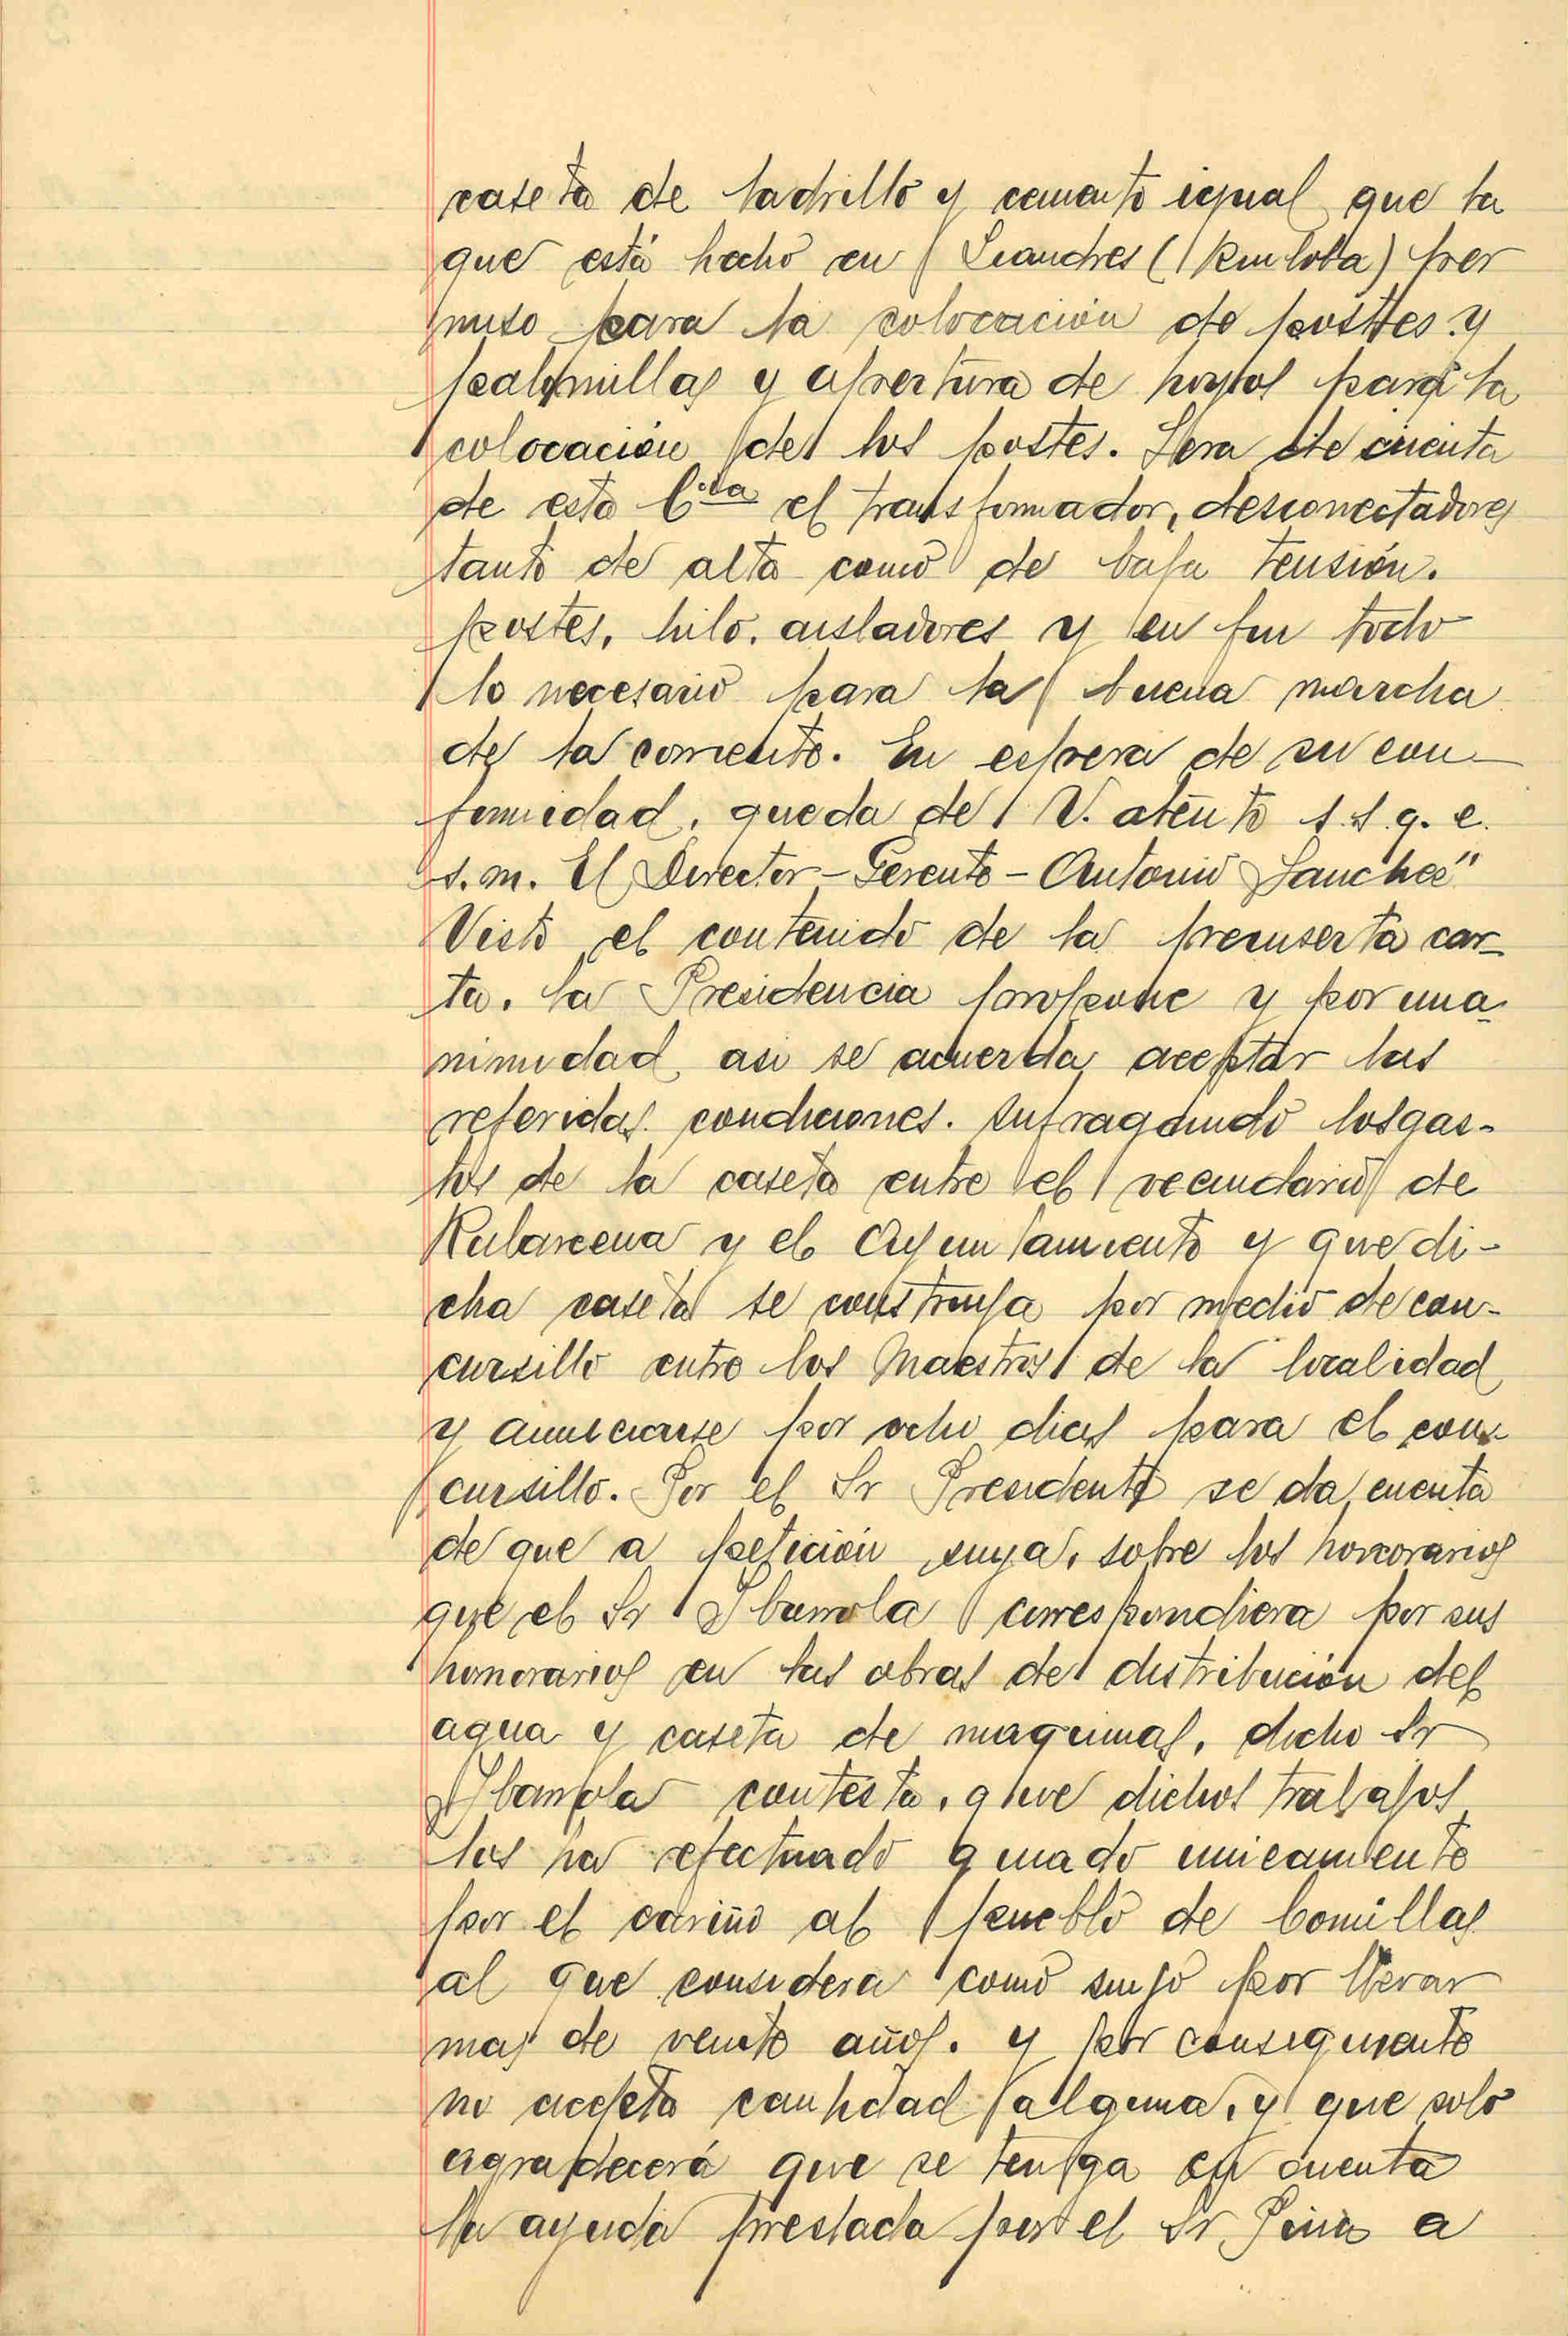 caseta de ladrillo y cemento igual que la
que está hecho en Liandres (Ruiloba) per
miso para la colocación de postes y
palomillas y apertura de hoyos para la
colocación de los postes. Sera de cuenta
de esta Cía el transformador, desconectadores
tanto de alta como de baja tensión.
postes, hilo, aisladores y en fin todo
lo necesario para la buena marcha
de la corriente. En espera de su con-
formidad, queda de V. atento s.s.q.e.
s.m. El Director-Gerente-Antonio Sanchez"
Visto el contenido de la preinserta car-
ta, la Presidencia propone y por una-
nimidad asi se acuerda aceptar las
referidas condiciones. sufragando los gas-
tos de la caseta entre el vecindario de
Rubarcena y el Ayuntamiento y que di-
cha caseta se construya por medio de con-
cursillo entre los Maestros de la localidad
y anunciarse por ocho dias para el con-
cursillo. Por el Sr Presidente se da cuenta
de que a petición suya, sobre los honorarios
que el Sr Ybarrola correspondiera por sus
honorarios en las obras de distribución del
agua y caseta de maquinas, dicho Sr
Ybarrola contesta, que dichos trabajos
los ha efectuado guiado unicamente
por el cariño al pueblo de Comillas
al que considera como suyo por llevar
mas de veinte años. y por consiguiente
no acepta cantidad alguna, y que solo
agradecerá que se tenga en cuenta
la ayuda prestada por el Sr a